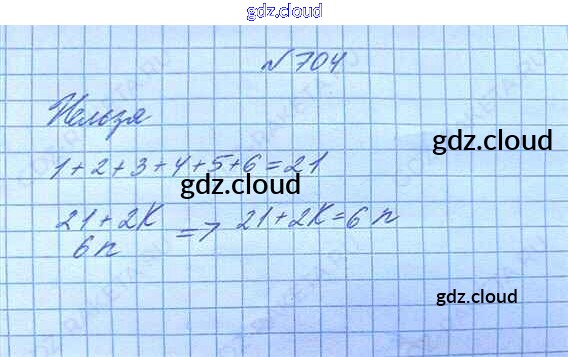 gdz.cloud
№704
Нельзя
gdz.cloud
1+2+3+4+5+6=21
gdz.cloud
21+2K
6n
=> 21+2K=6n
gdz.cloud